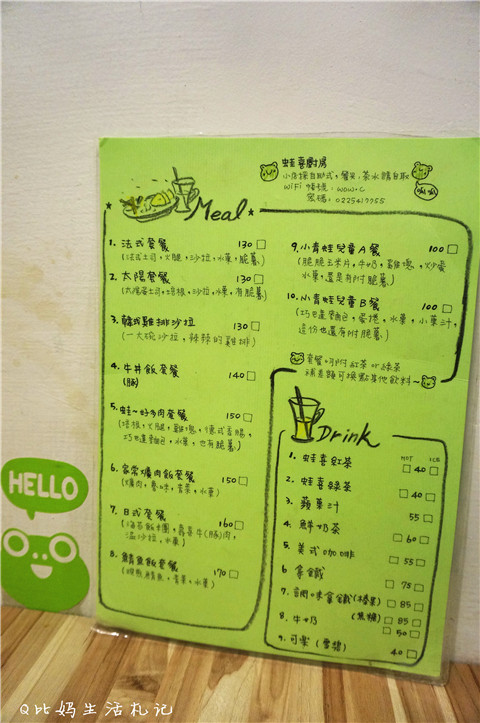 蛙喜廚房
小店採自助式，餐具、茶水請自取
WiFi 帳號：wow+c
密碼：0225417955
Meal
1. 法式套餐 130
(法式土司，火腿，沙拉，水菓，脆薯)
2. 太陽套餐 130
(太陽蛋土司，培根，沙拉，水菓，有脆薯)
3. 韓式雞排沙拉 130
(一大碗沙拉，辣辣的雞排)
4. 牛丼飯套餐 140
(豚)
5. 蛙~好多肉套餐 150
(培根，火腿，雞塊，德式香腸，
巧巴達麵包，水菓，也有脆薯)
6. 家常爌肉飯套餐 150
(爌肉，魯味，青菜，水菓)
7. 日式套餐 160
(海苔飯糰，壽喜牛(豚)肉，
溫沙拉，水菓)
8. 鯖魚飯套餐 170
(鯖魚，青菜，水菓)
9. 小青蛙兒童A餐 100
(脆脆玉米片，牛奶，雞塊，炒蛋
水菓，還是有附脆薯)
10. 小青蛙兒童B餐 100
(巧巴達麵包，蛋捲，水菓，小菓汁，
這份也還有附脆薯)
套餐可附紅茶or綠茶
補差額可換點其他飲料~
Drink
HOT ICE
1. 蛙喜紅茶 40
2. 蛙喜綠茶 40
3. 蘋菓汁 55
4. 鮮奶茶 60
5. 美式咖啡 55
6. 拿鐵 75
7. 風味拿鐵(榛菓) 85
(焦糖) 85
8. 牛奶 50
9. 可樂(雪碧) 40
HELLO
Q比妈生活札记